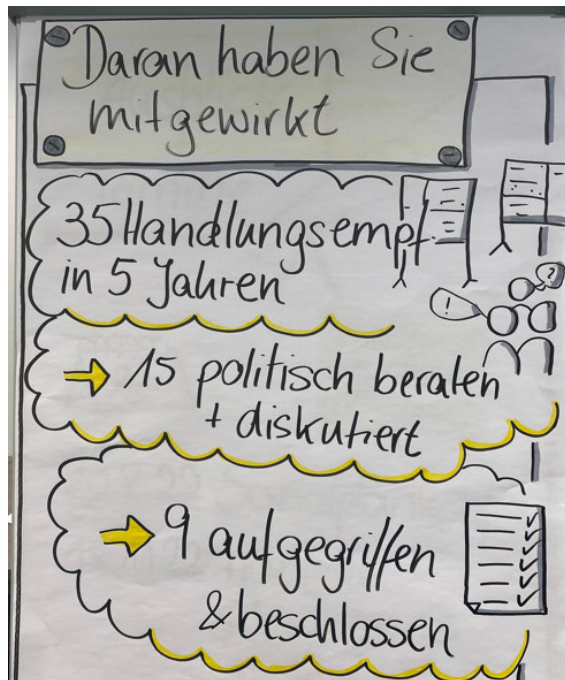 Daran haben Sie
mitgewirkt
35 Handlungsempf.
in 5 Jahren
! ?
→ 15 politisch beraten
+ diskutiert
→ 9 aufgegriffen
& beschlossen